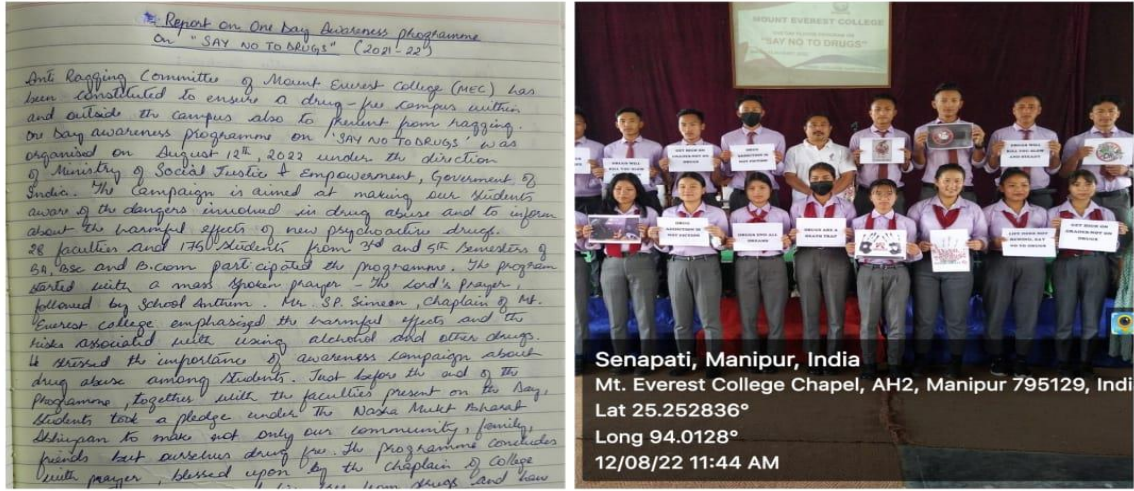 Report on One Day Awareness programme
on "SAY NO TO DRUGS" (2021-22)
Anti Ragging Committee of Mount Everest College (MEC) has
been constituted to ensure a drug-free campus within
and outside the campus also to prevent from ragging.
One Day awareness programme on 'SAY NO TO DRUGS' was
organised on August 12th, 2022 under the direction
of Ministry of Social Justice & Empowerment, Goverment of
India. The Campaign is aimed at making our students
aware of the dangers involved in drug abuse and to inform
about the harmful effects of new psychoactive drugs.
28 faculties and 175 students from 3rd and 5th Semesters of
BA, BSc and B.com participated the programme. The program
started with a mass spoken prayer - The Lord's Prayer,
followed by School Anthem. Mr. SP. Simeon, Chaplain of Mt.
Everest college emphasised the harmful effects and the
risks associated with using alchohol and other drugs.
He stressed the importance of awareness campaign about
drug abuse among students. Just before the end of the
Programme, together with the faculties present on the Day,
students took a pledge under the Nasha Mukt Bharat
Abhiyan to make not only our community, family,
friends but ourselves drug free. The programme concludes
with prayer, blessed upon by the chaplain of College
from drugs and how
MOUNT EVEREST COLLEGE
"SAY NO TO DRUGS"
DRUGS WILL
KILL YOU SLOW
GET HIGH ON
GRADES NOT ON
DRUGS
DRUG
ADDICTION IS
NOT FICTION
DRUGS WILL
KILL YOU SLOW
AND STEADY
DRUG
ADDICTION IS
NOT FICTION
DRUGS END ALL
DREAMS
DRUGS ARE A
DEATH TRAP
LIFE DOES NOT
REWIND, SAY
NO TO DRUGS
GET HIGH ON
GRADES NOT ON
DRUGS
Senapati, Manipur, India
Mt. Everest College Chapel, AH2, Manipur 795129, Indi
Lat 25.252836°
Long 94.0128°
12/08/22 11:44 AM